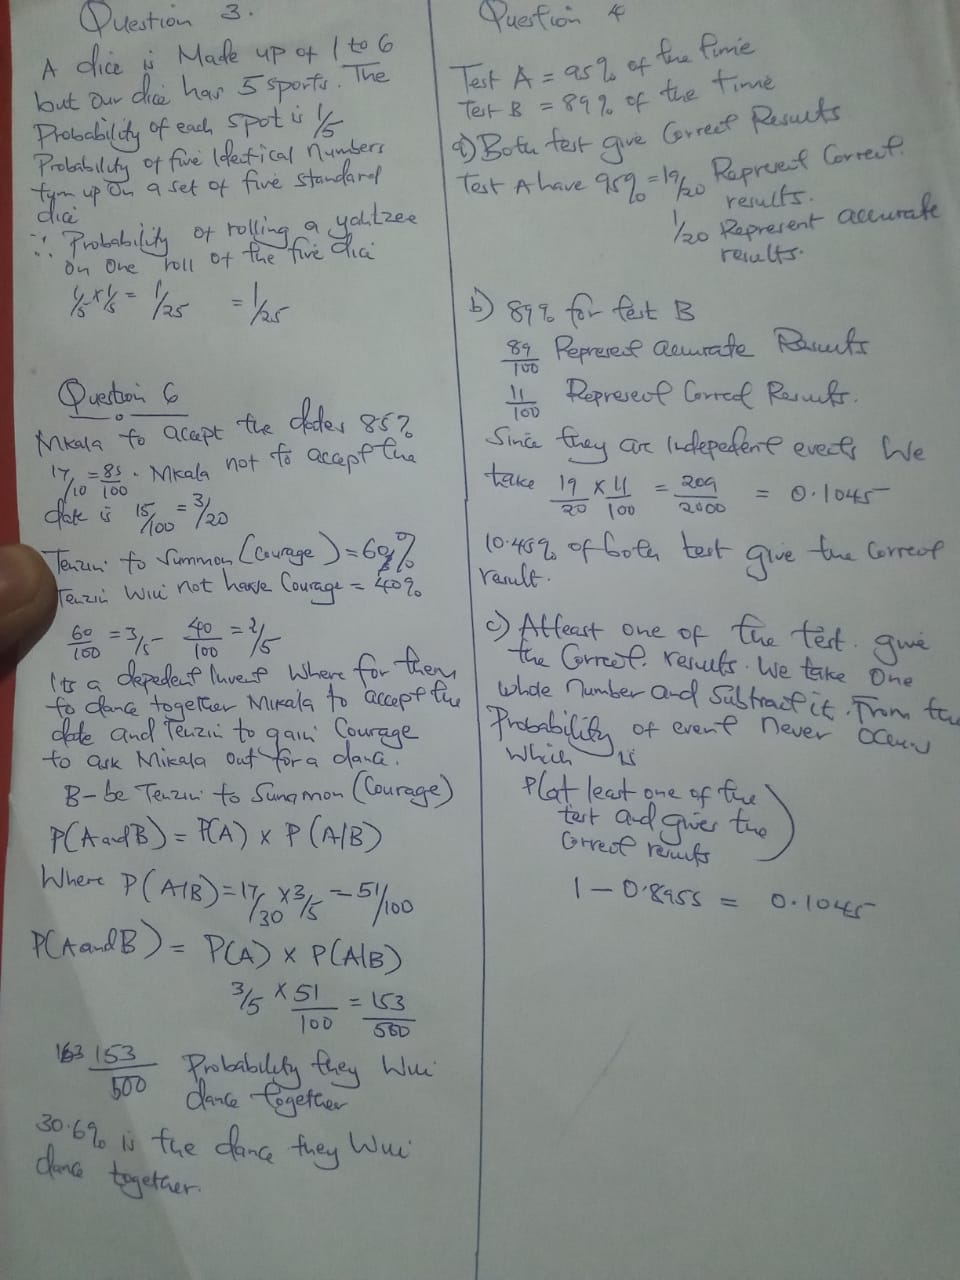 Question 3.
A dice is Made up of 1 to 6
but our dice has 5 sports. The
Probability of each spot is 1/5
Probability of five Identical numbers
turn up on a set of five standard
dice
∴ Probability of rolling a yahtzee
on one roll of the five dice
1/5 x 1/5 = 1/25 = 1/25
Question 6
Mikala to accept the dates 85%
17/10 = 85/100. Mikala not to accept the
date is 15/100 = 3/20
Tenzin to Summon (Courage) = 60%
Tenzin Will not have Courage = 40%
60/100 = 3/5 - 40/100 = 2/5
Its a depedent Where for them
to dance together Mikala to accept the
date and Tenzin to gain Courage
to ask Mikala out for a dance.
B - be Tenzin to Sunamon (Courage)
P(A and B) = P(A) x P(A/B)
Where P(A/B) = 17/30 x 3/5 = 51/100
P(A and B) = P(A) x P(A/B)
3/5 x 51/100 = 153/500
153/500 Probability they Will
dance together
30.6% is the dance they Will
dance together.
Question 4
Test A = 95% of the time
Test B = 89% of the time
a) Both test give Correct Results
Test A have 95% = 19/20 Represent Correct.
results.
1/20 Represent accurate
results.
b) 89% for test B
89/100 Represent accurate Results
11/100 Represent Correct Results.
Since they are Independent events We
take 19/20 x 11/100 = 209/2000 = 0.1045
10.45% of both test give the Correct
result.
c) Atleast one of the test. give
the Correct. results. We take One
whole number and Subtract it. From the
Probability of event never Occur
Which is
P(at least one of the
test and gives the
Correct results)
1 - 0.8955 = 0.1045